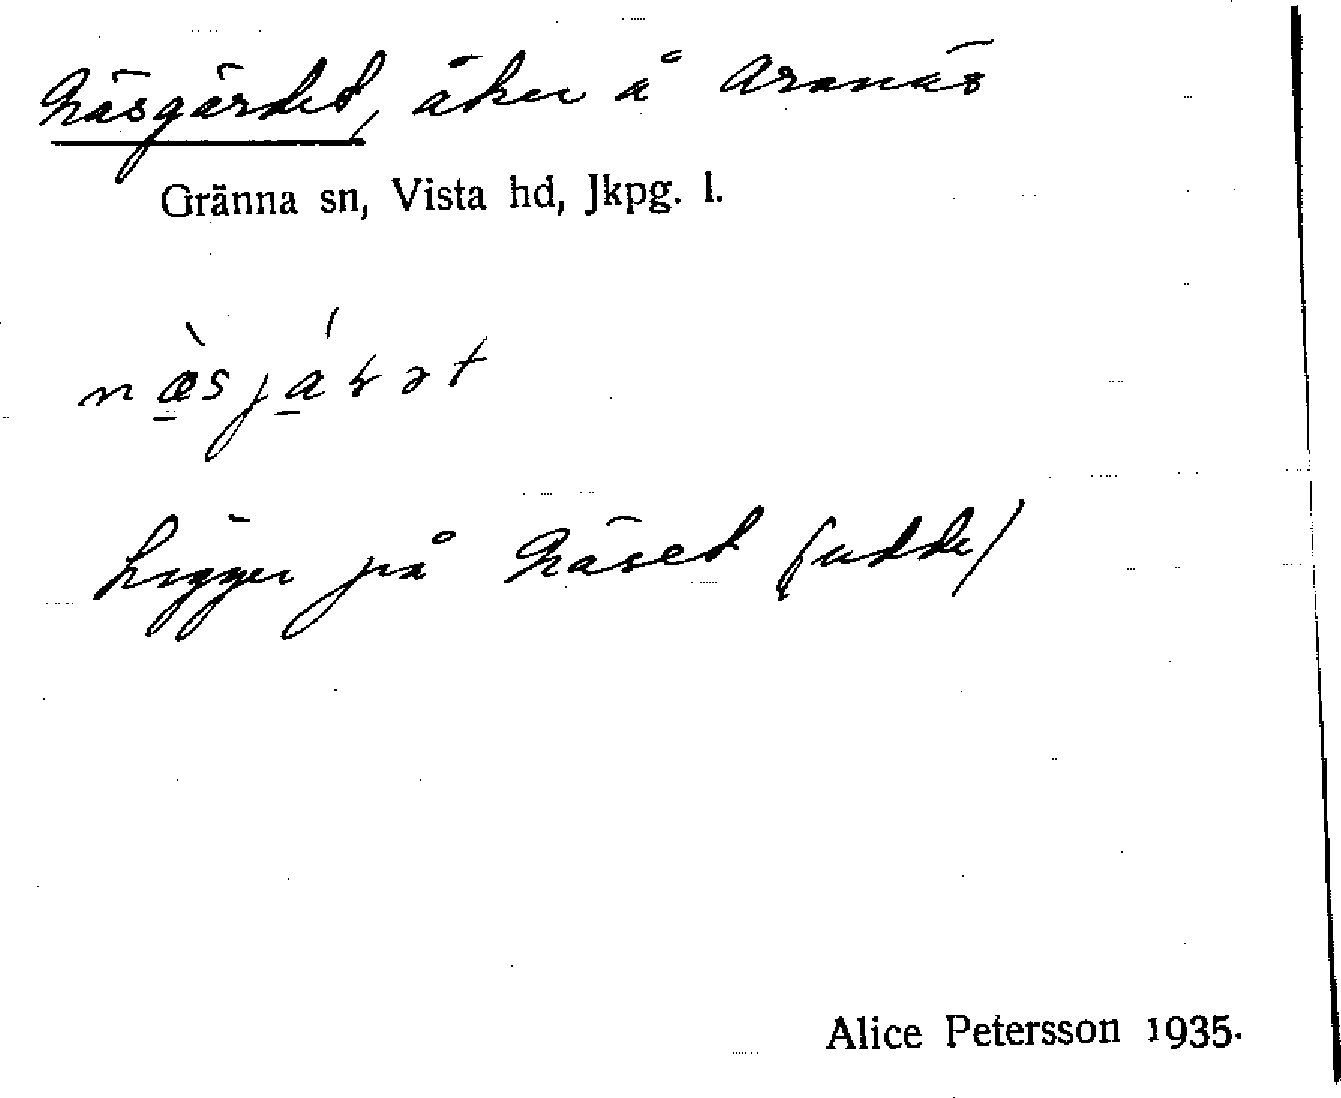 Näsgärdet, åker å Aranäs
Gränna sn, Vista hd, Jkpg. l.
næ̠̀sjá̠rət
Ligger på Näset (udde)
Alice Petersson 1935.